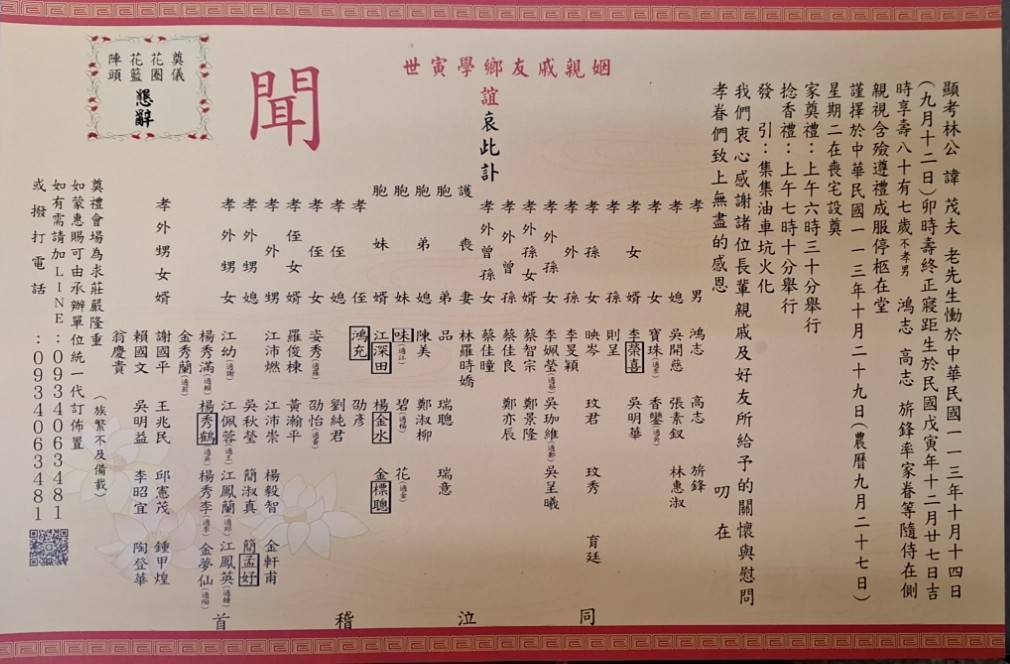 顯考林公 諱 茂夫 老先生慟於中華民國一一三年十月十四日
(九月十二日)卯時壽終正寢距生於民國戊寅年十二月廿七日吉
時享壽八十有七歲不孝男 鴻志 高志 旂鋒率家眷等隨侍在側
親視含殮遵禮成服停柩在堂
謹擇於中華民國一一三年十月二十九日(農曆九月二十七日)
星期二在喪宅設奠
家奠禮:上午六時三十分舉行
捻香禮:上午七時十分舉行
發 引:集集油車坑火化
我們衷心感謝諸位長輩親戚及好友所給予的關懷與慰問
孝眷們致上無盡的感恩
叨 在
姻親戚友鄉學寅世
誼哀此訃
聞
孝男 鴻志 高志 旂鋒
孝媳 吳開慈 張素釵 林惠淑
孝女 寶珠 香鑾
孝女婿 李榮喜 吳明華
孝孫 則呈
孝孫女 映岑 玟君 玟秀 育廷
孝外孫 李旻穎
孝外孫女 李姵瑩 吳珈維 吳呈曦
孝外孫女婿 蔡智宗 鄭景隆
孝外曾孫 蔡佳良 鄭亦辰
孝外曾孫女 蔡佳曈
護喪妻 林羅時嬌
胞弟 品 瑞聰 瑞意
胞弟媳 陳美 鄭淑柳
胞妹 味(適江) 碧(適楊) 花(適金)
胞妹婿 江深田 楊金水 金標聰
孝侄 鴻充 劭彥
孝侄媳 劉純君
孝侄女 姿秀(適羅) 劭怡(適黃)
孝侄女婿 羅俊棟 黃瀚平
孝外甥 江沛燃 江沛崇 楊毅智 金軒甫
孝外甥媳 吳秋瑩 簡淑真 簡孟妤
孝外甥女 江幼(適謝) 江佩蓉(適王) 江鳳蘭(適邱) 江鳳英(適鍾)
楊秀滿(適賴) 楊秀鶴(適吳) 楊秀李(適李) 金夢仙(適陶)
金秀蘭(適翁)
孝外甥女婿 謝國平 王兆民 邱憲茂 鍾甲煌
賴國文 吳明益 李昭宜 陶登華
翁慶貴
(族繁不及備載)
同 泣 稽 首
奠儀
花圈
花籃
陣頭
懇辭
奠禮會場為求莊嚴隆重
如蒙惠賜可由承辦單位統一代訂佈置
如有需請加LINE:0934063481
或撥打電話 :0934063481